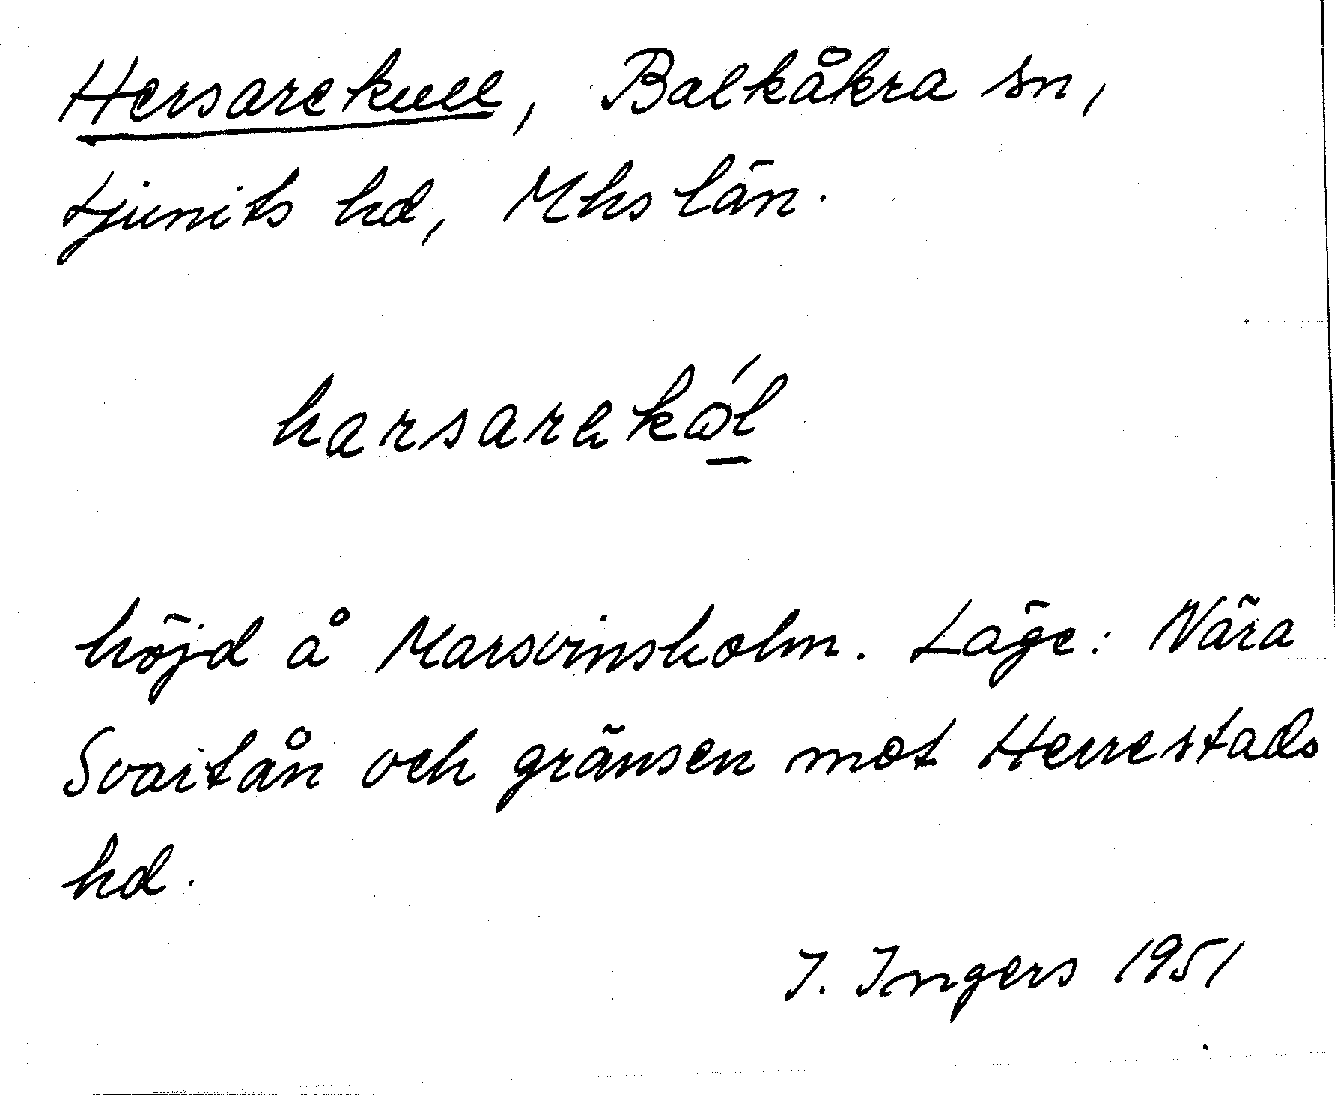 Hersarekull, Balkåkra sn,
Ljunits hd, Mhs län.
harsarekól
höjd å Marsvinsholm. Läge: Nära
Svartån och gränsen mot Herrestads
hd.
I. Ingers 1951